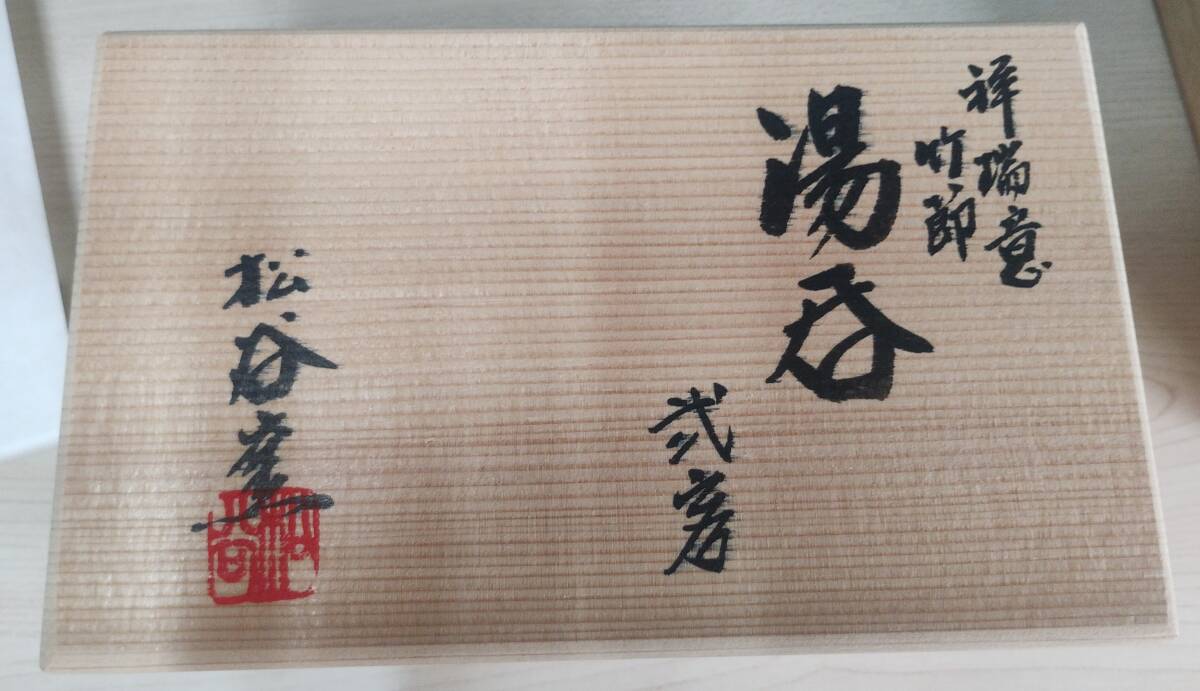 祥瑞意
竹節
湯呑
弐客
松谷窯
松谷